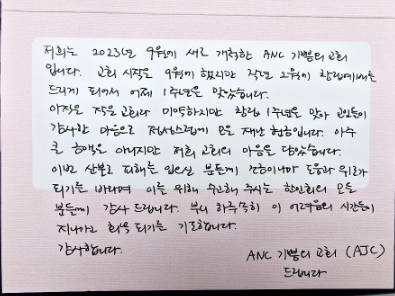 저희는 2023년 9월에 새로 개척한 ANC 기쁨의 교회
입니다. 교회 시작은 9월에 했지만 작년 2월에 창립예배를
드리게 되어서 어제 1주년을 맞았습니다.
아직은 작은 교회라 미약하지만 창립 1주년을 맞아 교인들이
감사한 마음으로 정성스럽게 모은 재난 헌금입니다. 아주
큰 금액은 아니지만 저희 교회의 마음을 담았습니다.
이번 산불로 피해를 입으신 분들께 조금이나마 도움과 위로가
되기를 바라며 이를 위해 수고해 주시는 한인회의 모든
분들께 감사 드립니다. 부디 하루속히 이 어려움의 시간들이
지나가고 회복 되기를 기도합니다.
감사합니다.
ANC 기쁨의 교회 (AJC)
드립니다